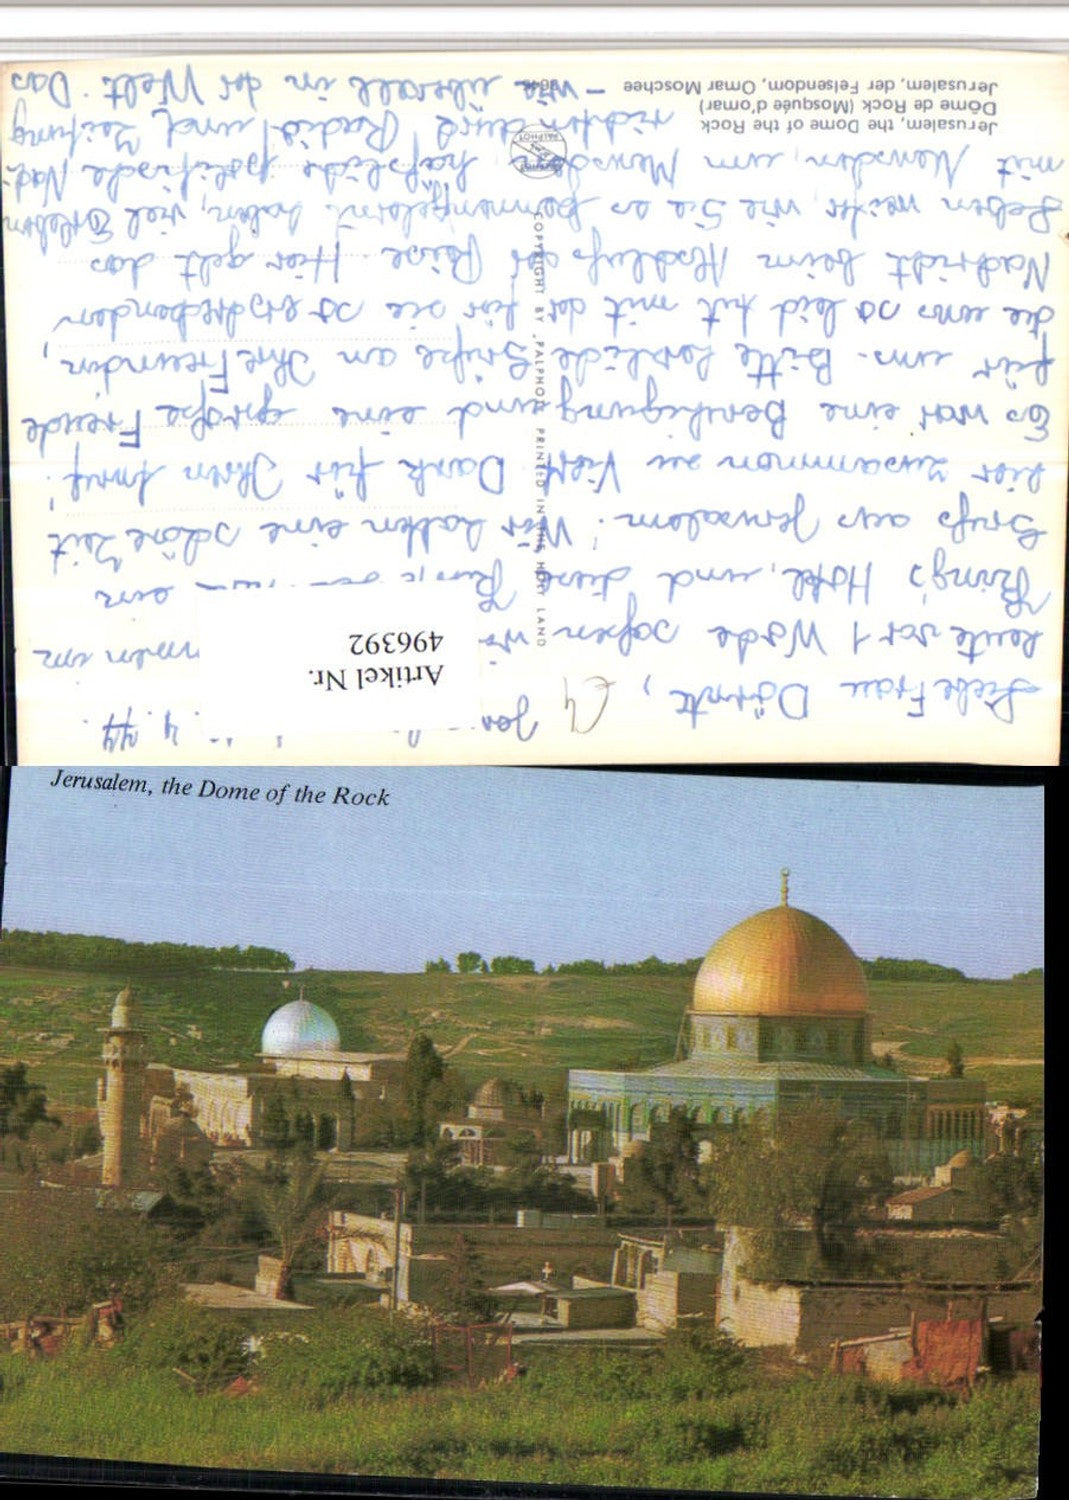 Jerusalem, the Dome of the Rock
Dôme de Rock (Mosquée d'omar)
Jerusalem, der Felsendom, Omar Moschee
PALPHOT
COPYRIGHT BY PALPHOT PRINTED IN THE HOLY LAND
Artikel Nr.
496392
4. 77.
Liebe Frau
heute vor 1 Woche saßen wir im
King's Hotel, und diese ein
Gruß aus Jerusalem! Wir hatten eine schöne Zeit
hier zusammen Dank für Ihren Anruf!
Es war eine Beruhigung und eine große Freude
für uns. Bitte herzliche Grüße an Ihre Freundin,
die uns so leid tut mit der für sie so erschreckenden
Nachricht beim Abschluß der Reise. Hier geht das
Leben weiter, wie Sie es kennengelernt haben, viel Erleben
mit Menschen, um Menschen, häßliche politische Nach
richten durch Radio und Zeitung
– wie überall in der Welt. Das
Jerusalem, the Dome of the Rock